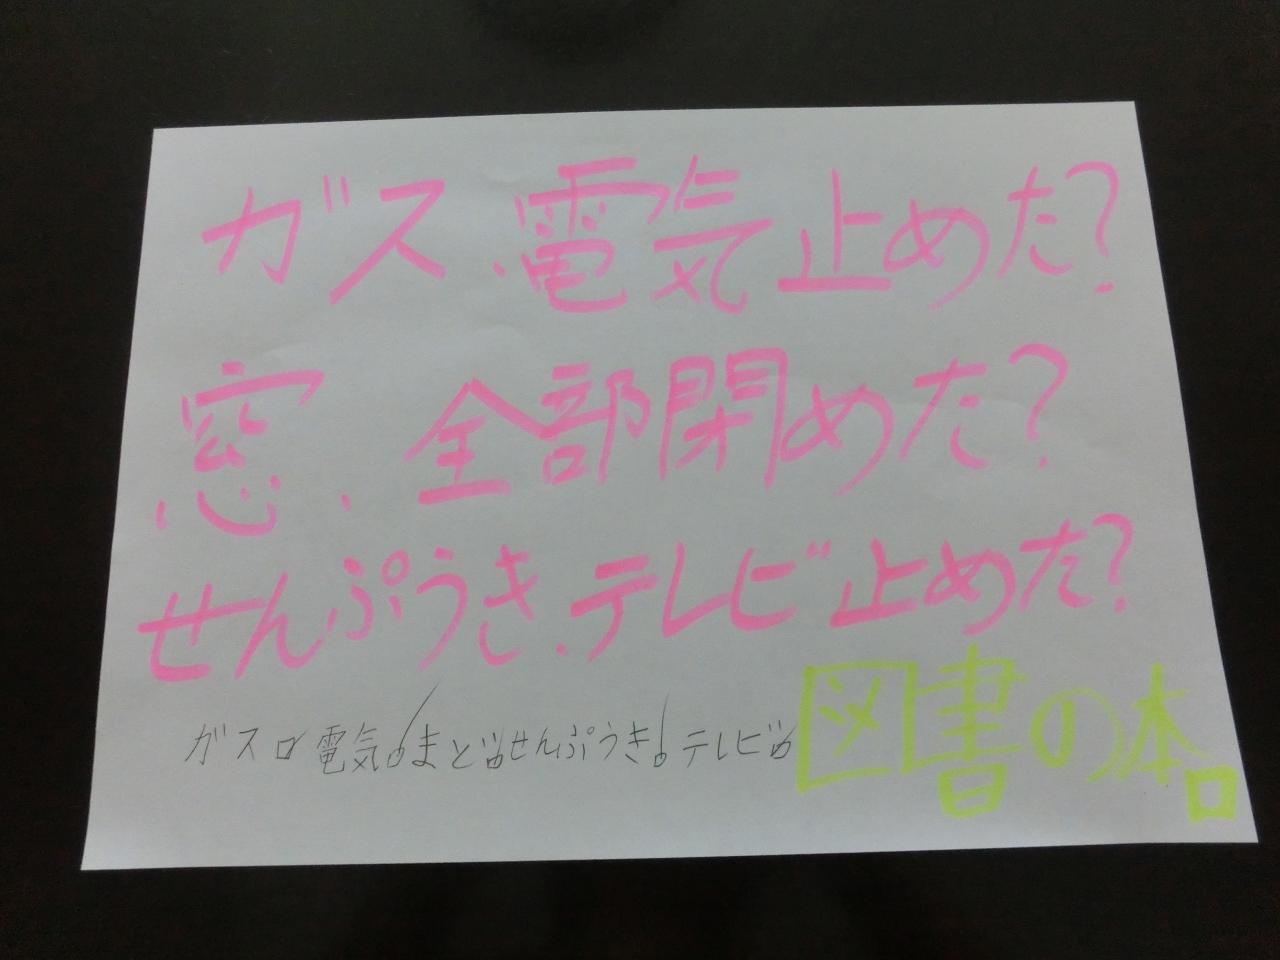 ガス、電気止めた?
窓、全部閉めた?
せんぷうき、テレビ止めた?
ガス☑電気☑まど☑せんぷうき☑テレビ☑
図書の本□